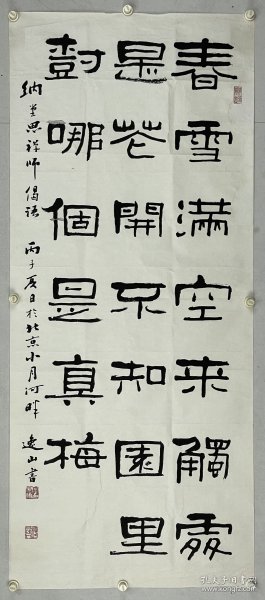 春雪滿空来觸處
是花開不知園里
封哪個是真梅
納堂思禪師偈語 丙子夏日於北京小月河畔 逸山書
孔夫子旧书网